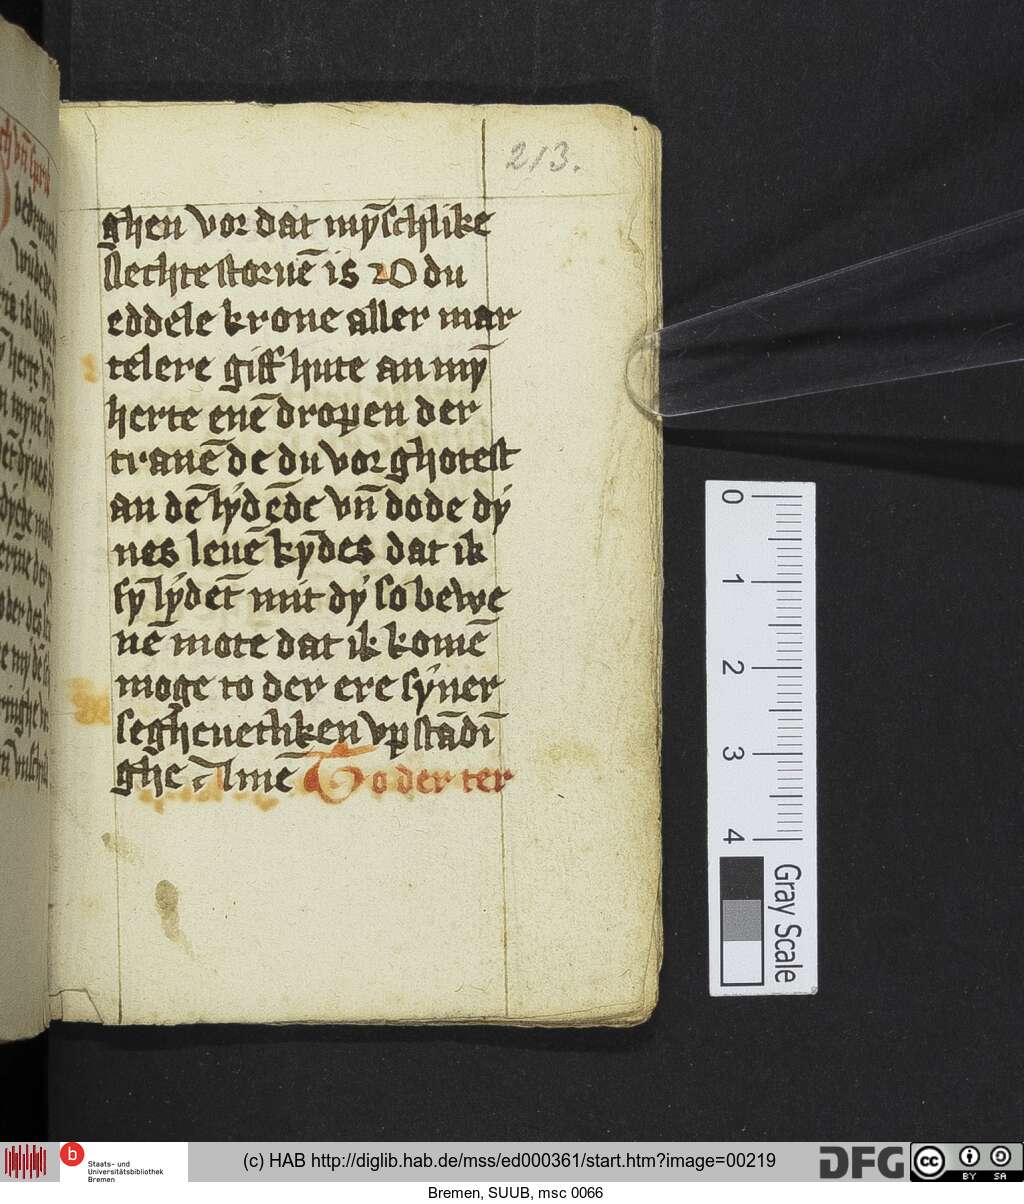 213.
ghen vor dat mȳschlike
slechte storuē is O du
eddele krone aller mar
telere giff hute an mȳ
herte enē dropen der
tranē de du vor ghotest
an dē lydēde vn̄ dode dy
nes leuē kȳdes dat ik
sȳ lydēt mit dy so bewe
nē mote dat ik komē
moge to der ere syner
segheuethken vp stādī
ghe Amē To der ter
0
1
2
3
4
Gray Scale
b Staats- und
Universitätsbibliothek
Bremen
(c) HAB http://diglib.hab.de/mss/ed000361/start.htm?image=00219
DFG
cc BY SA
Bremen, SUUB, msc 0066